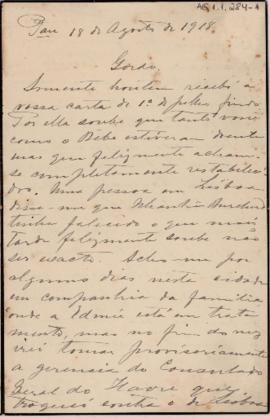 AG 1.1.284-1
Pau 18 de Agosto de 1918.
Gordo,
Somente hontem recebi a
vossa carta de 1º de julho findo.
Por ella soube que tanto você
como o Bebe estiveram doente
mas que felizmente acham-
se completamente restabeleci-
dos. Uma pessoa em Lisboa
disse-me que
tinha fallecido o que mais
tarde felizmente soube não
ser exacto. Acho-me por
alguns dias nesta cidade
em companhia da familia
onde a Edmée está em trata-
mento, mas no fim do mez
irei tomar provisoriamente
a gerencia do Consulado
Geral do Havre que
troquei contra o de Lisboa